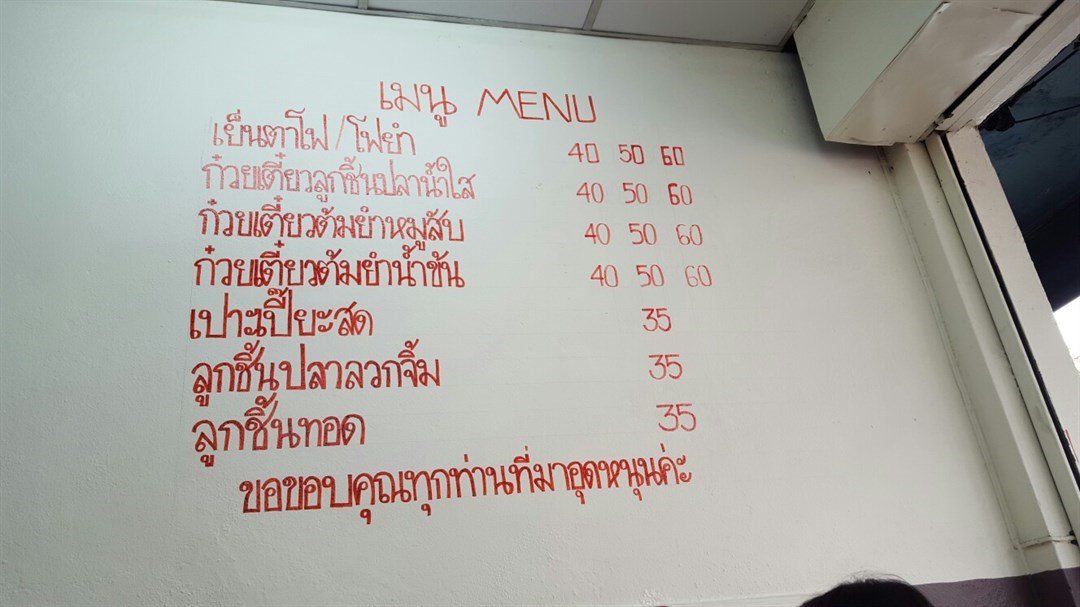 เมนู MENU
เย็นตาโฟ/โฟยำ 40 50 60
ก๋วยเตี๋ยวลูกชิ้นปลาน้ำใส 40 50 60
ก๋วยเตี๋ยวต้มยำหมูสับ 40 50 60
ก๋วยเตี๋ยวต้มยำน้ำข้น 40 50 60
เปาะเปี๊ยะสด 35
ลูกชิ้นปลาลวกจิ้ม 35
ลูกชิ้นทอด 35
ขอขอบคุณทุกท่านที่มาอุดหนุนค่ะ